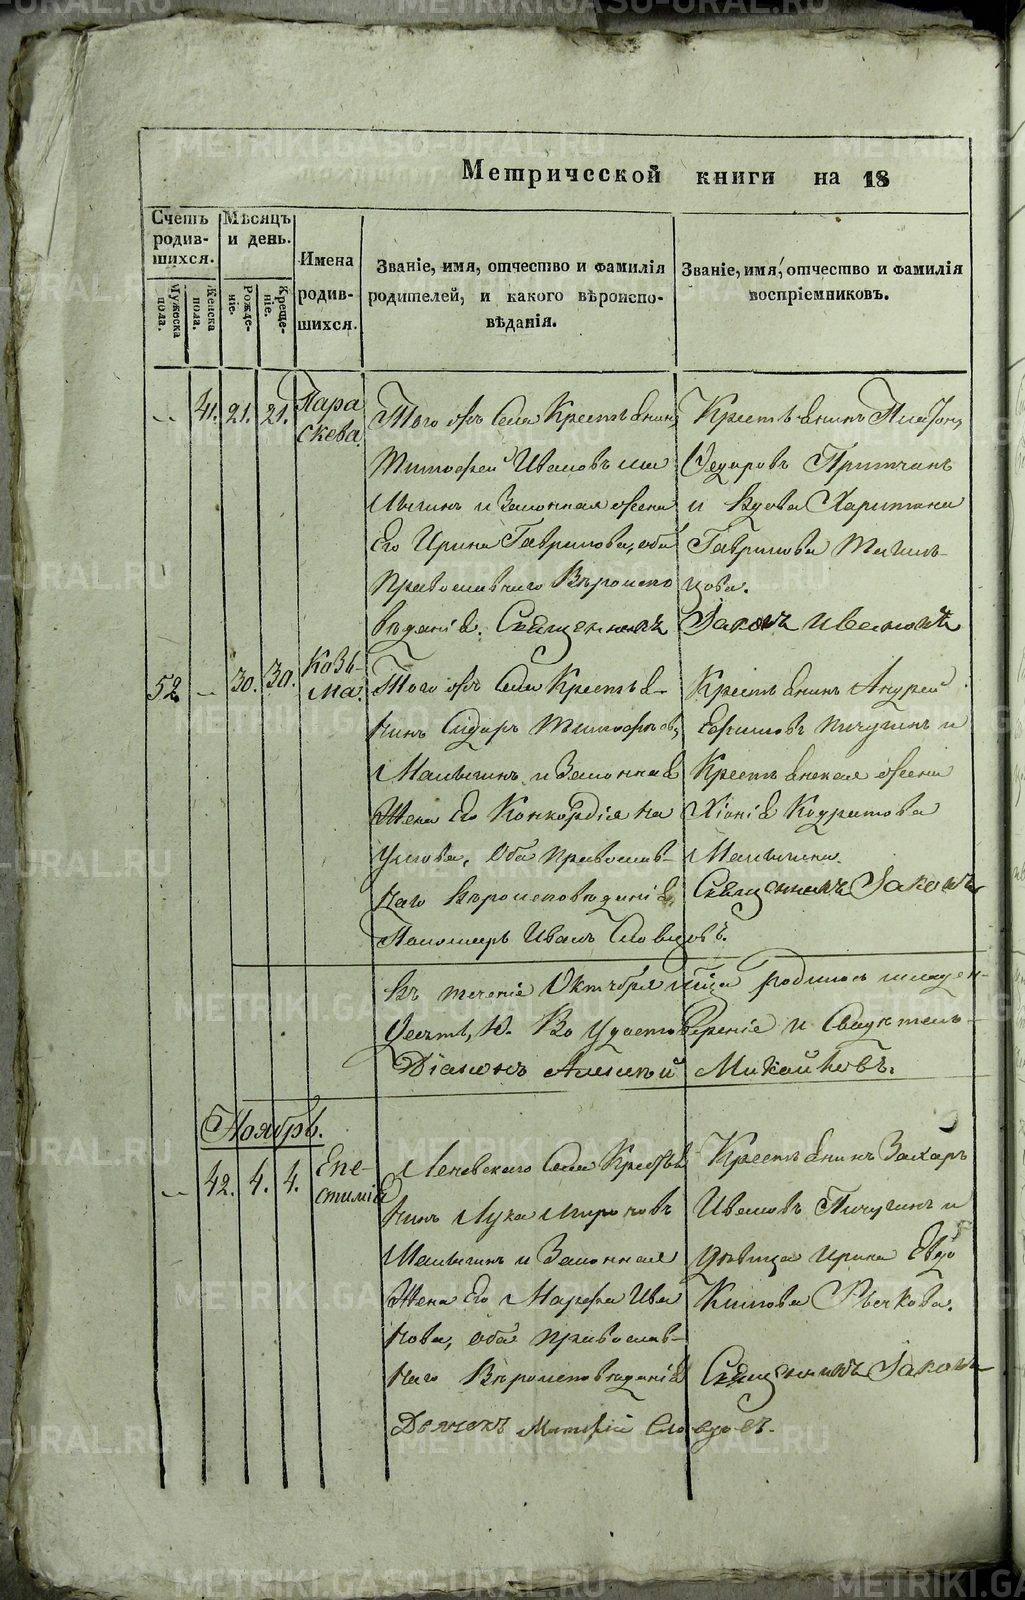 METRIKI.GASO-URAL.RU
Метрической книги на 18
Счетъ родив-шихся.
Мѣсяцъ и день.
Имена родив-шихся.
Званіе, имя, отчество и фамилія родителей, и какого вѣроиспо-вѣданія.
Званіе, имя, отчество и фамилія воспріемниковъ.
Мужеска пола.
Женска пола.
Рожде-ніе.
Креще-ніе.
41. 21. 21. Пара
скева.
Того жъ Села Крестьянинъ
Тимофей Ивановъ Ма
лыгинъ и Законная жена
Его Ирина Гаврилова, оба
православнаго Вѣроиспо
вѣданія. Священникъ
Крестьянинъ Платонъ
Федоровъ
и Вдова Харитина
Гаврилова
цова.
Іаковъ
52 – 30. 30. Козь-
ма.
Того жъ Села Крестья-
нинъ Сидоръ Тимофѣевъ
Малыгинъ и Законная
Жена Его Конкордія На
умова, Оба православ-
наго Вѣроисповѣданія
Пономарь Иванъ Словцовъ.
Крестьянинъ Андрей
Ефимовъ Пичугинъ и
Крестьянская жена
Хіонія Кодратова
Малыгина.
Священникъ Іаковъ
Въ теченіе Октября мѣца родилось младен-
десять, 10. Во Удостоверѣніе и Свидѣтель-
Діаконъ Алексѣй Михайловъ.
Ноябрь.
42. 4. 4. Епе-
стимія
Села Крестья
нинъ Лука Мироновъ
Малыгинъ и Законная
Жена Его Марѳа Ива
нова, оба православ-
наго Вѣроисповѣданія
Дьячекъ Словцовъ.
Крестьянинъ Захаръ
Ивановъ Пичугинъ и
дѣвица Ирина Евдо
кимова Рычкова.
Священникъ Іаковъ